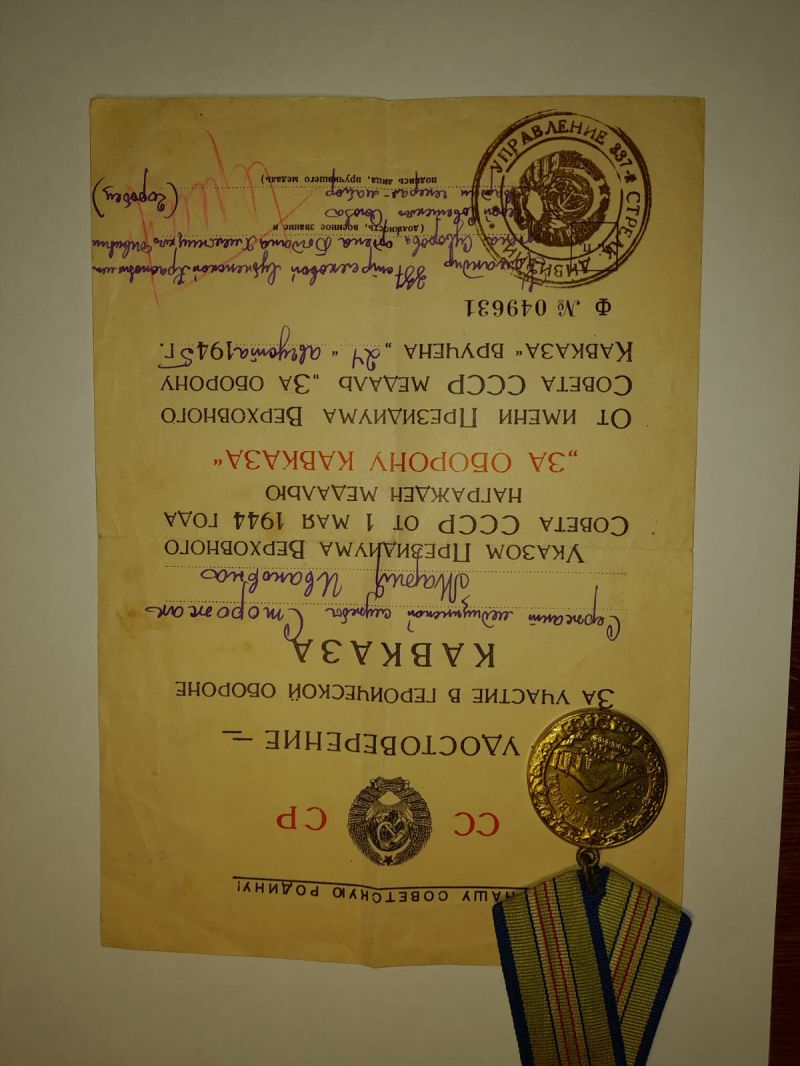 НАШУ СОВЕТСКУЮ РОДИНУ!
СС СР
УДОСТОВЕРЕНИЕ
ЗА УЧАСТИЕ В ГЕРОИЧЕСКОЙ ОБОРОНЕ
КАВКАЗА
Сержант медицинской службы Сторожак
Мария Ивановна
УКАЗОМ ПРЕЗИДИУМА ВЕРХОВНОГО
СОВЕТА СССР ОТ 1 МАЯ 1944 ГОДА
НАГРАЖДЕН МЕДАЛЬЮ
„ЗА ОБОРОНУ КАВКАЗА“
ОТ ИМЕНИ ПРЕЗИДИУМА ВЕРХОВНОГО
СОВЕТА СССР МЕДАЛЬ „ЗА ОБОРОНУ
КАВКАЗА“ ВРУЧЕНА „24“ августа 1945 г.
Ф № 049631
Командир 337 стрелковой Лубненской
ордена Суворова ордена Богдана Хмельницкого дивизии
(должность, военное звание и
Герой Советского Союза
генерал-майор (Горобец)
подпись лица, вручившего медаль)
УПРАВЛЕНИЕ 337-й СТРЕЛК. ДИВИЗИИ